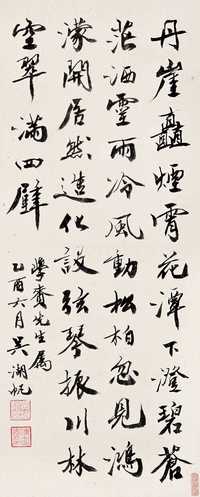 丹崖矗煙霄花潭下澄碧蒼
茫洒靈雨冷風動松柏忽見鴻
濛開居然造化設弦琴振川林
空翠滿四壁
學賚先生屬
乙酉六月吴湖帆